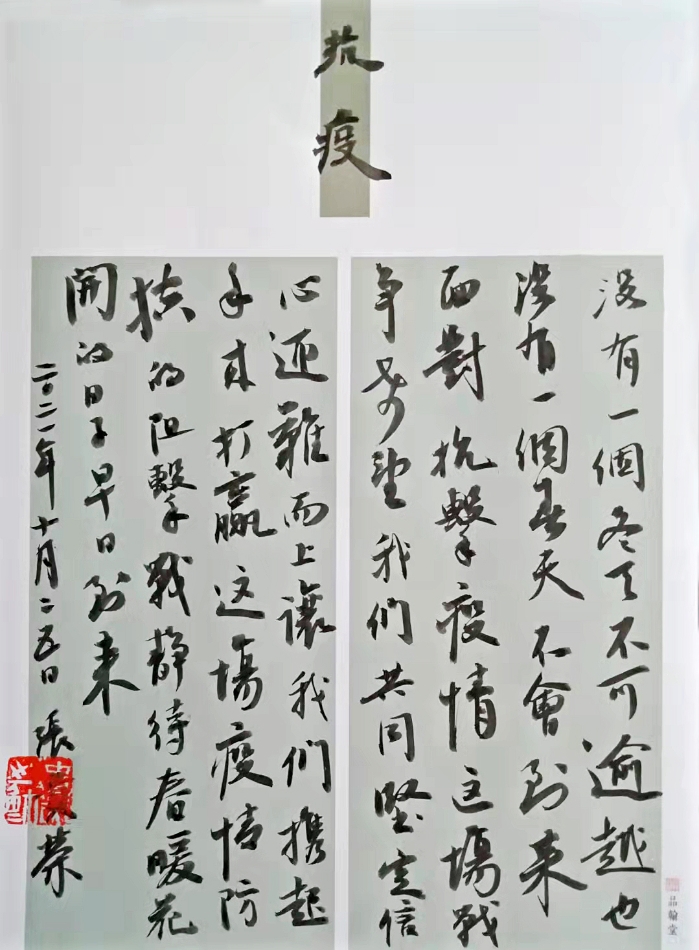 抗疫
没有一個冬天不可逾越也
没有一個春天不會到来
面對抗擊疫情这場戰
争希望我們共同堅定信
心迎難而上讓我們携起
手来打赢这場疫情防
控的阻擊戰静待春暖花
開的日子早日到来
二〇二一年十月二五日 張榮
品翰堂